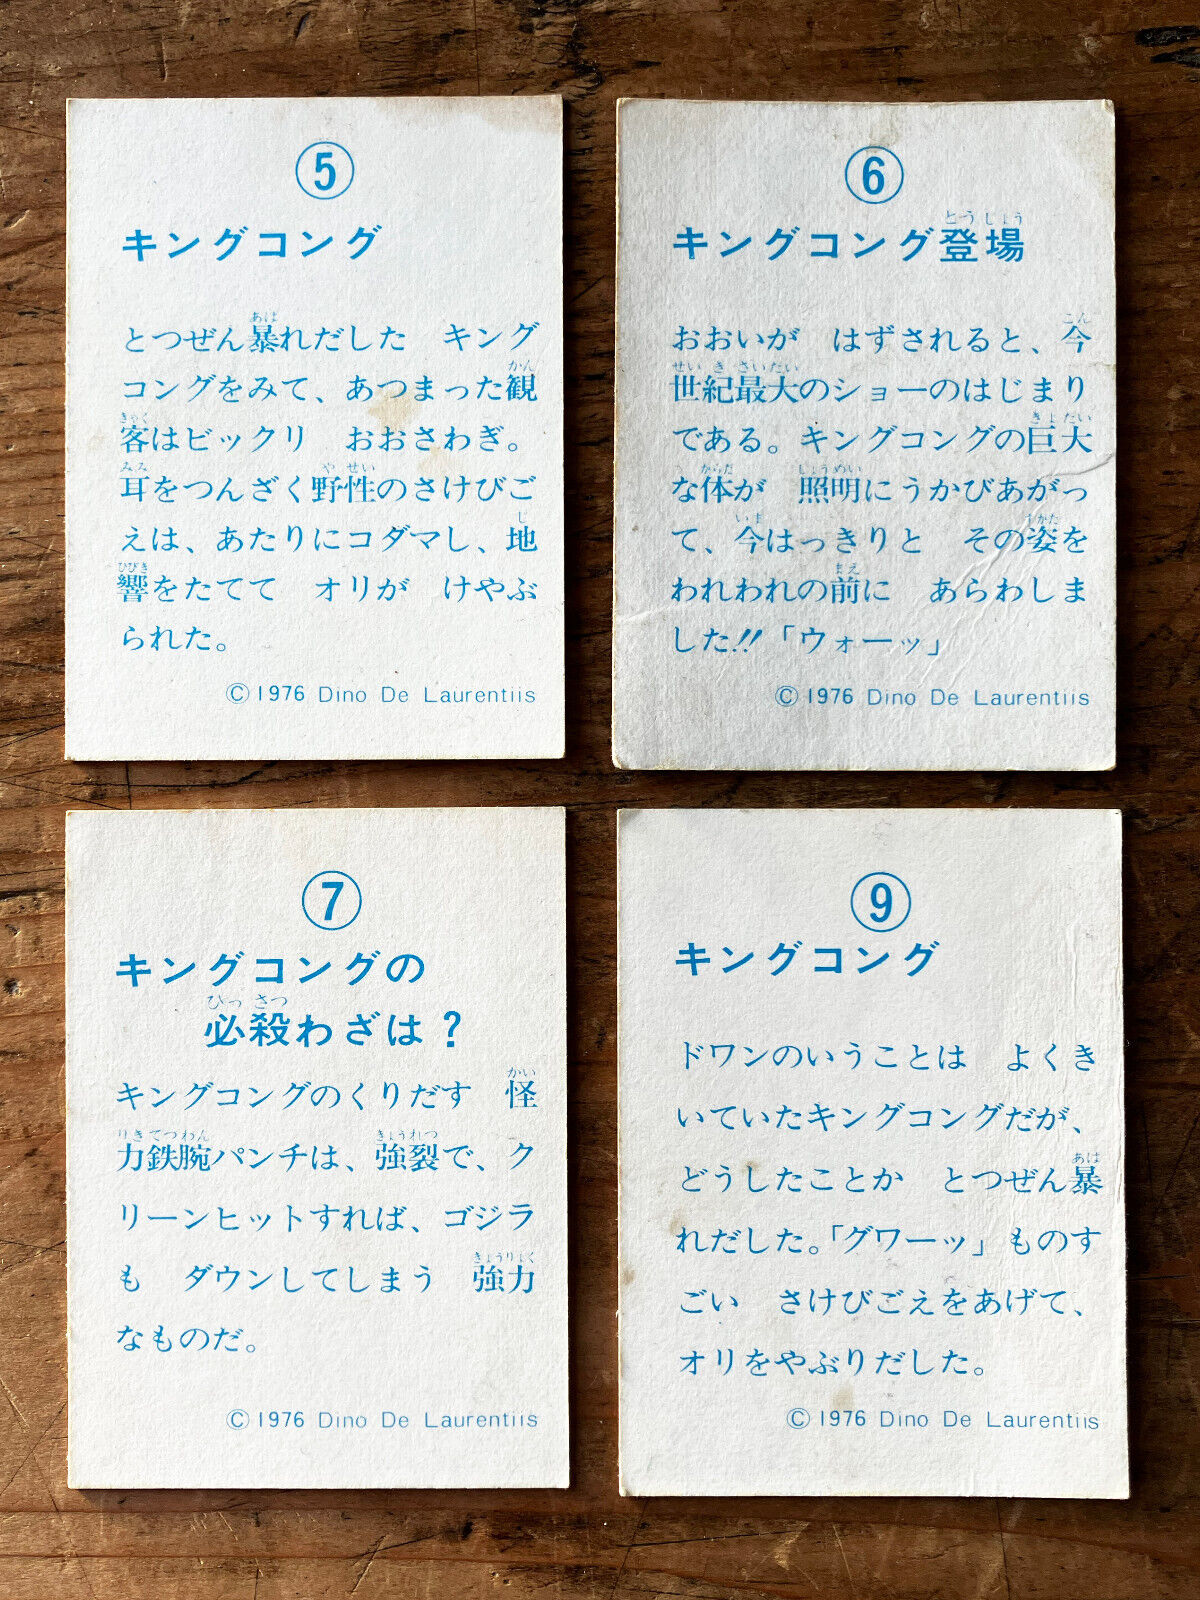 5
キングコング
とつぜん暴れだした　キング
コングをみて、あつまった観
客はビックリ　おおさわぎ。
耳をつんざく野性のさけびご
えは、あたりにコダマし、地
響をたてて　オリが　けやぶ
られた。
© 1976 Dino De Laurentiis
6
キングコング登場
おおいが　はずされると、今
世紀最大のショーのはじまり
である。キングコングの巨大
な体が　照明にうかびあがっ
て、今はっきりと　その姿を
われわれの前に　あらわしま
した!!「ウォーッ」
© 1976 Dino De Laurentiis
7
キングコングの
必殺わざは？
キングコングのくりだす　怪
力鉄腕パンチは、強裂で、ク
リーンヒットすれば、ゴジラ
も　ダウンしてしまう　強力
なものだ。
© 1976 Dino De Laurentiis
9
キングコング
ドワンのいうことは　よくき
いていたキングコングだが、
どうしたことか　とつぜん暴
れだした。「グワーッ」ものす
ごい　さけびごえをあげて、
オリをやぶりだした。
© 1976 Dino De Laurentiis